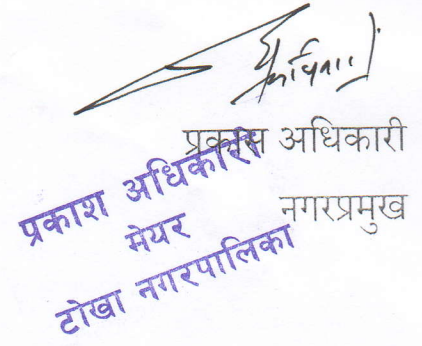 प्रकाश अधिकारी
नगरप्रमुख
प्रकाश अधिकारी
मेयर
टोखा नगरपालिका